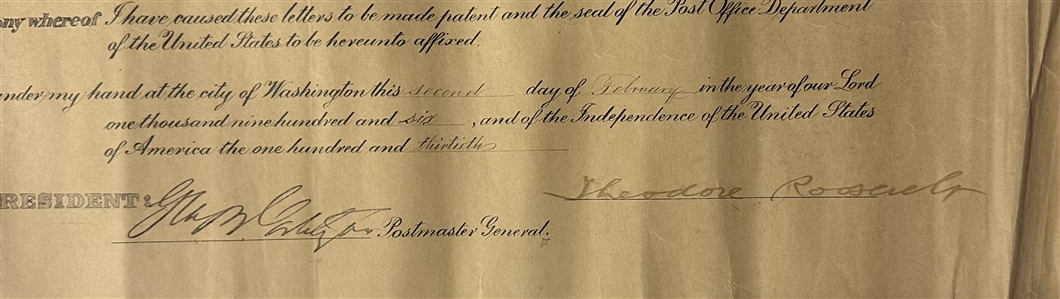 ony whereof I have caused these letters to be made patent and the seal of the Post Office Department
of the United States to be hereunto affixed.
under my hand at the city of Washington this second day of February in the year of our Lord
one thousand nine hundred and six, and of the Independence of the United States
of America the one hundred and thirtieth
RESIDENT: Theodore Roosevelt
Postmaster General.